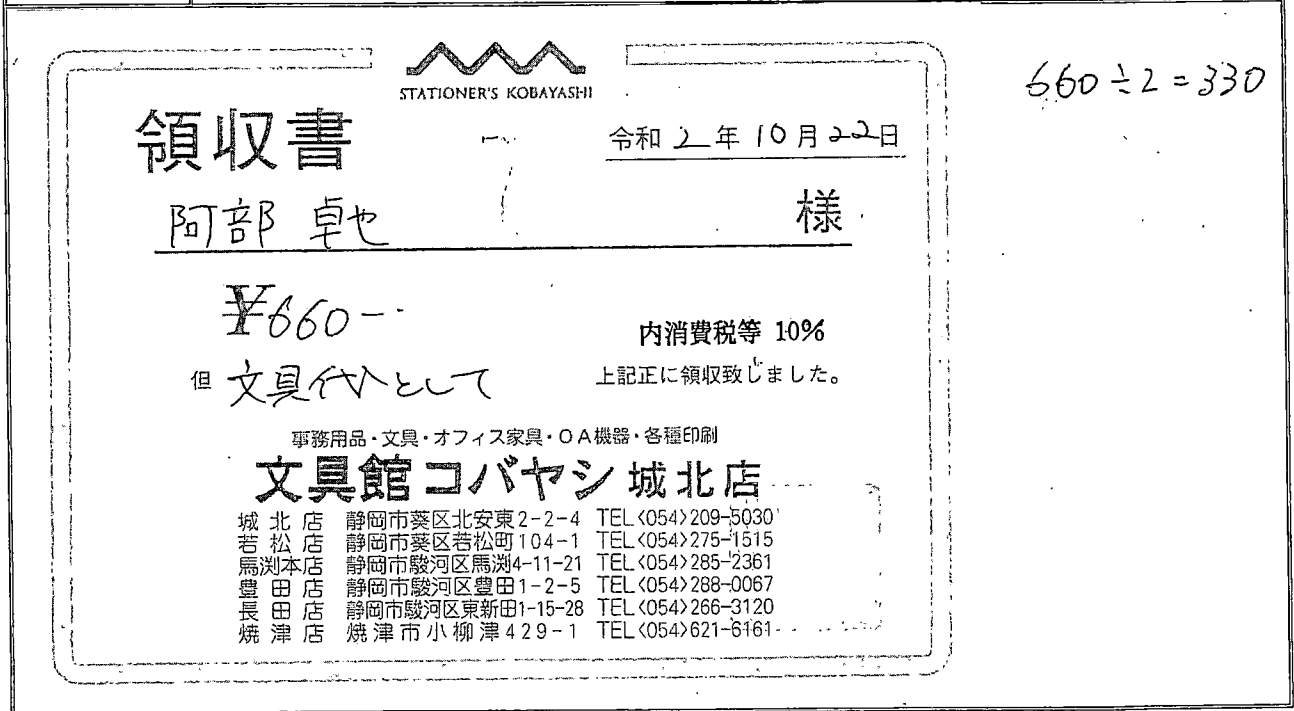 STATIONER'S KOBAYASHI
660÷2=330
領収書
令和 2年 10月 22日
阿部 卓也 様
¥660-
内消費税等 10%
但 文具代として
上記正に領収致しました。
事務用品・文具・オフィス家具・OA機器・各種印刷
文具館コバヤシ 城北店
城北店 静岡市葵区北安東2-2-4 TEL<054>209-5030
若松店 静岡市葵区若松町104-1 TEL<054>275-1515
馬渕本店 静岡市駿河区馬渕4-11-21 TEL<054>285-2361
豊田店 静岡市駿河区豊田1-2-5 TEL<054>288-0067
長田店 静岡市駿河区東新田1-15-28 TEL<054>266-3120
焼津店 焼津市小柳津429-1 TEL<054>621-6161